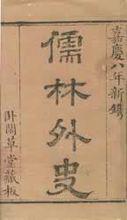 嘉慶八年新鐫
儒林外史
臥閑草堂藏板